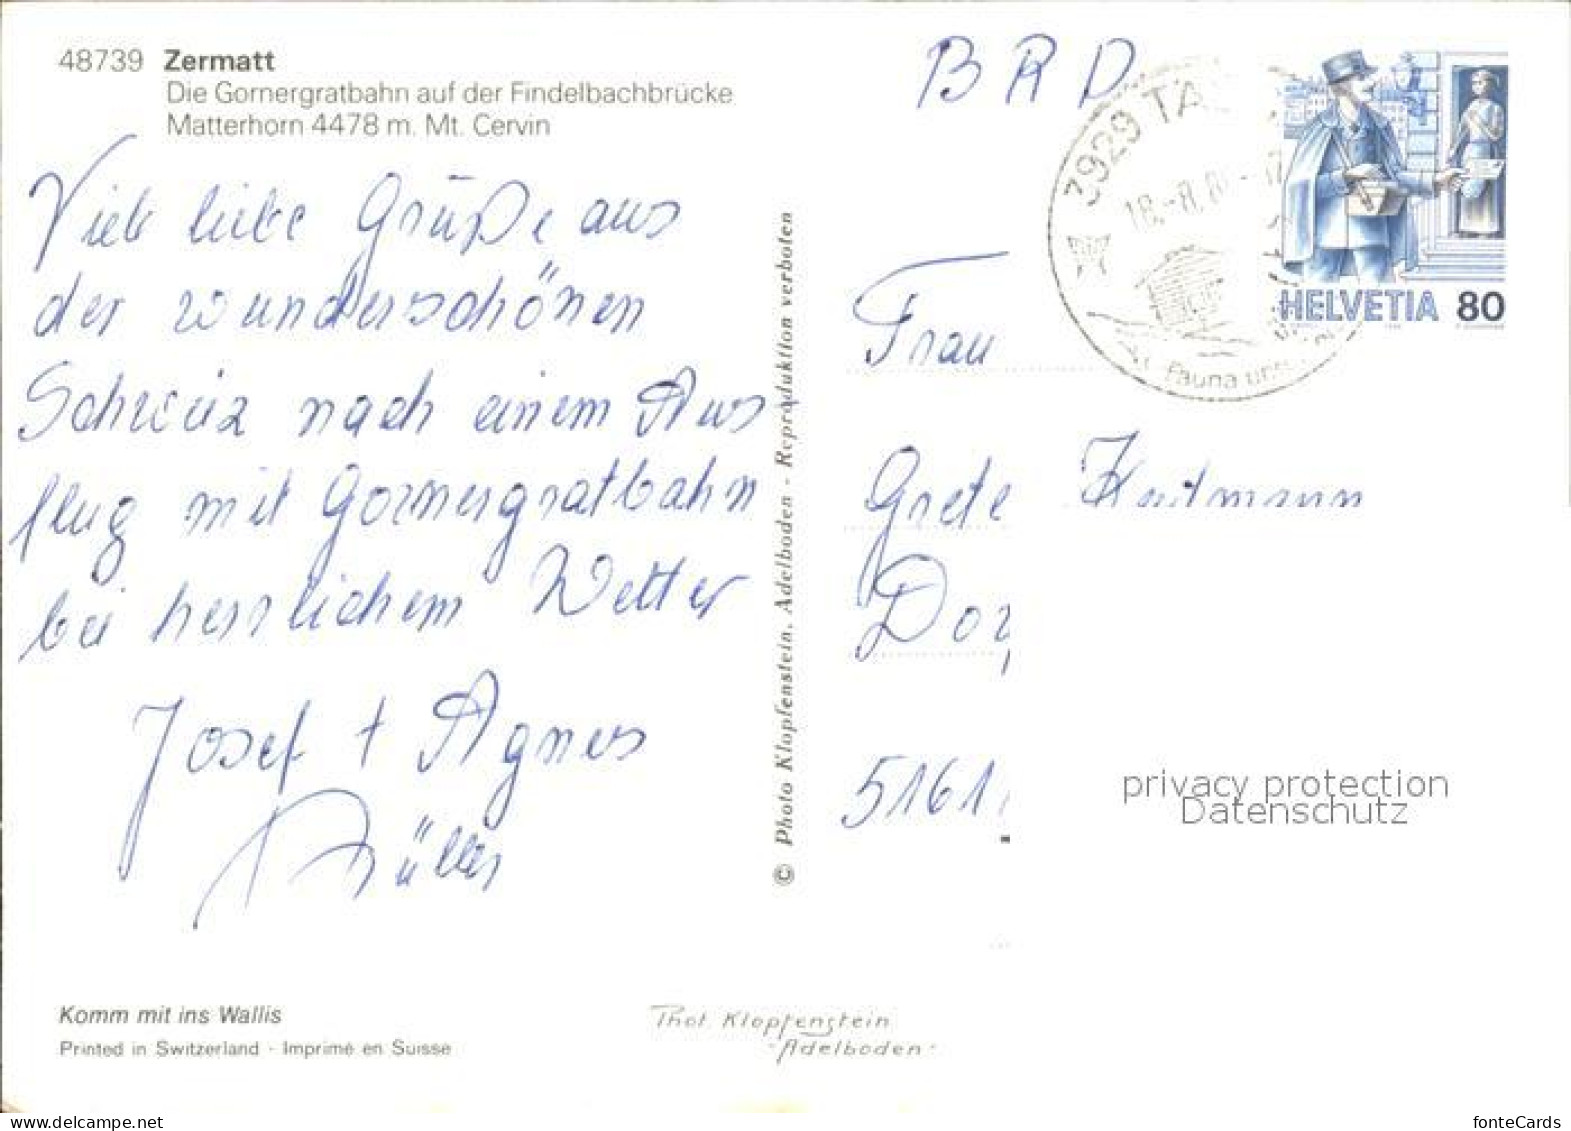 48739 Zermatt
Die Gornergratbahn auf der Findelbachbrücke
Matterhorn 4478 m. Mt. Cervin
Viele liebe Grüße aus
der wunderschönen
Schweiz nach einem Aus-
flug mit Gornergratbahn
bei herrlichem Wetter
Josef + Agnes
Müller
Komm mit ins Wallis
Printed in Switzerland - Imprimé en Suisse
Phot. Klopfenstein
-Adelboden-
© Photo Klopfenstein, Adelboden - Reproduktion verboten
BRD
3929 TÄ
18.-8.
Fauna und
HELVETIA 80
Frau
Grete Hartmann
Dor
5161
privacy protection
Datenschutz
fonteCards